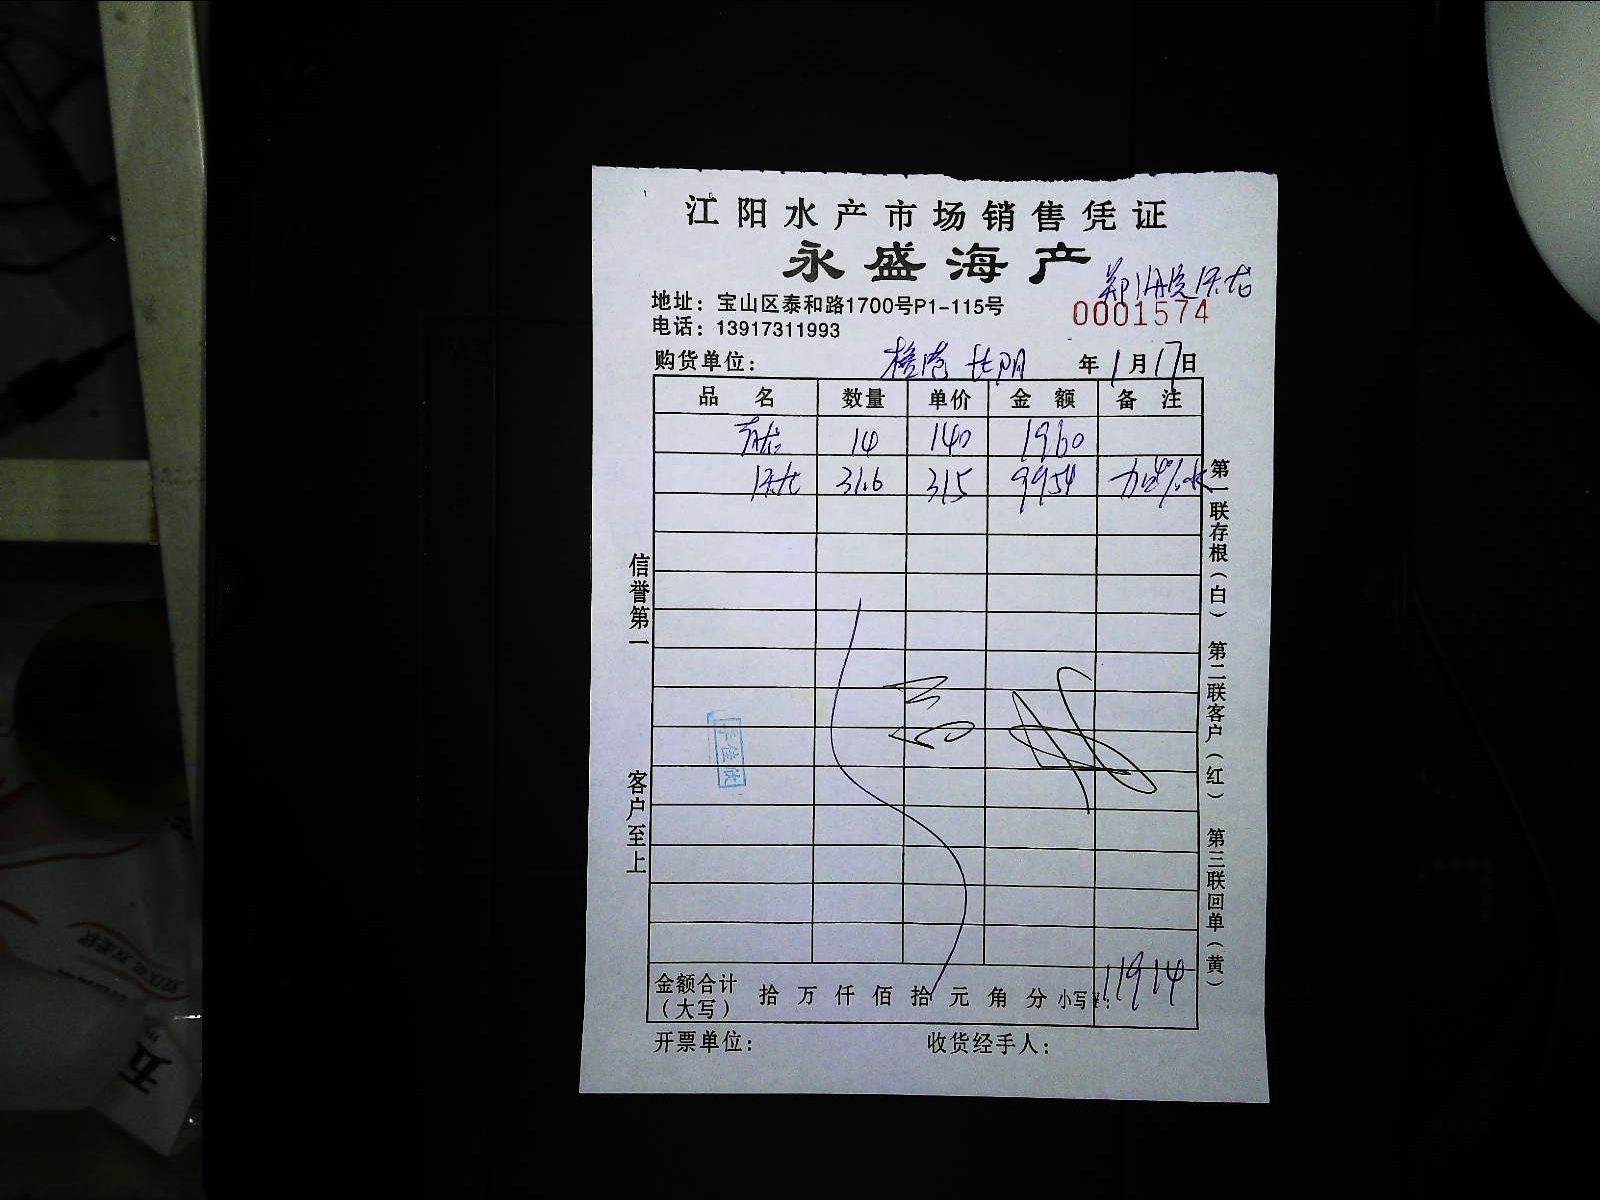 江阳水产市场销售凭证
永盛海产
地址：宝山区泰和路1700号P1-115号
0001574
电话：13917311993
购货单位： 长阴 年1月17日
品名 数量 单价 金额 备注
14 140 1960
31.6 315 9954 加4%水
信誉第一
客户至上
第一联存根（白） 第二联客户（红） 第三联回单（黄）
金额合计（大写） 拾 万 仟 佰 拾 元 角 分 小写¥：11914
开票单位： 收货经手人：
五